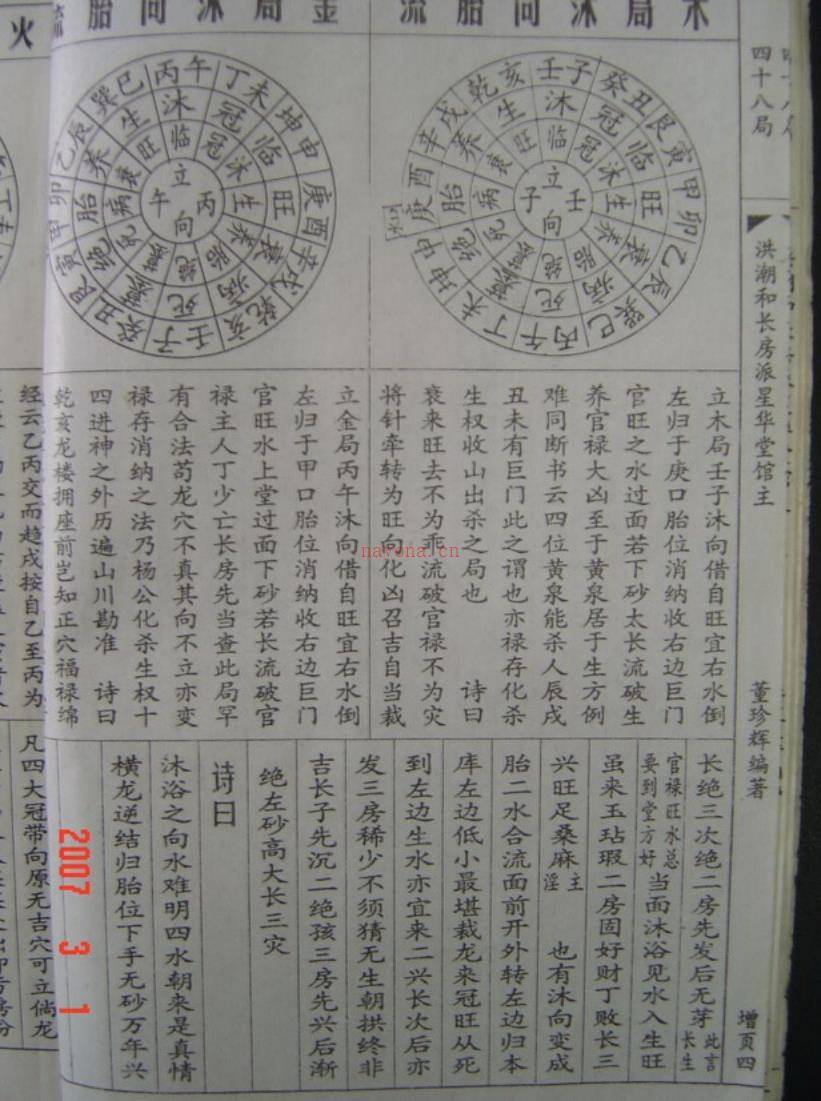 四十八局
洪潮和长房派星华堂馆主
董珍辉编著
增页四
木局沐向胎流
壬子
癸丑
艮寅
甲卯
乙辰
巽巳
丙午
丁未
坤申
庚酉
辛戌
乾亥
沐
冠
临
旺
衰
病
死
墓
绝
胎
养
生
临
冠
沐
生
养
胎
绝
墓
死
病
衰
旺
立壬向子
水口
立木局壬子沐向借自旺宜右水倒
左归于庚口胎位消纳收右边巨门
官旺之水过面若下砂太长流破生
养官禄大凶至于黄泉居于生方例
难同断书云四位黄泉能杀人辰戌
丑未有巨门此之谓也亦禄存化杀
生权收山出杀之局也 诗曰
衰来旺去不为乖流破官禄不为灾
将针牵转为旺向化凶召吉自当裁
金局沐向胎流
丙午
丁未
坤申
庚酉
辛戌
乾亥
壬子
癸丑
艮寅
甲卯
乙辰
巽巳
沐
冠
临
旺
衰
病
死
墓
绝
胎
养
生
临
冠
沐
生
养
胎
绝
墓
死
病
衰
旺
立丙向午
立金局丙午沐向借自旺宜右水倒
左归于甲口胎位消纳收右边巨门
官旺水上堂过面下砂若长流破官
禄主人丁少亡长房先当查此局罕
有合法苟龙穴不真其向不立亦变
禄存消纳之法乃杨公化杀生权十
四进神之外历遍山川勘准 诗曰
乾亥龙楼拥座前岂知正穴福禄绵
长绝三次绝二房先发后无芽 此言长生
官禄旺水总要到堂方好 当面沐浴见水入生旺
虽来玉玷瑕二房固好财丁败长三
兴旺足桑麻 主淫 也有沐向变成
胎二水合流面前开外转左边归本
库左边低小最堪裁龙来冠旺从死
到左边生水亦宜来二兴长次后亦
发三房稀少不须猜无生朝拱终非
吉长子先沉二绝孩三房先兴后渐
绝左砂高大长三灾
诗曰
沐浴之向水难明四水朝来是真情
横龙逆结归胎位下手无砂万年兴
火
经云乙丙交而趋戌按自乙至丙为
凡四大冠带向原无吉穴可立倘龙
nayona.cn
2007 3 1